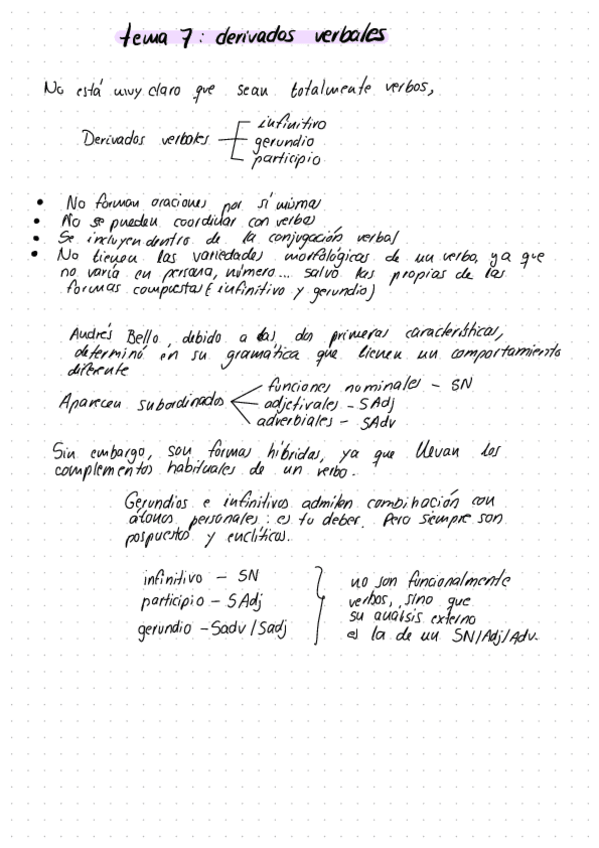 tema 7: derivados verbales
No está muy claro que sean totalmente verbos,
Derivados verbales
infinitivo
gerundio
participio
• No forman oraciones por sí misma
• No se pueden coordinar con verbos
• Se incluyen dentro de la conjugación verbal
• No tienen las variedades morfológicas de un verbo, ya que
no varía en persona, número... salvo las propias de las
formas compuestas (infinitivo y gerundio)
Andrés Bello, debido a las dos primeras características,
determinó en su gramática que tienen un comportamiento
diferente
Aparecen subordinados
funciones nominales - SN
adjetivales - SAdj
adverbiales - SAdv
Sin embargo, son formas híbridas, ya que llevan los
complementos habituales de un verbo.
Gerundios e infinitivos admiten combinación con
átonos personales: es tu deber. Pero siempre son
pospuestos y enclíticos.
infinitivo - SN
participio - SAdj
gerundio - Sadv/Sadj
no son funcionalmente
verbos, sino que
su análisis externo
es la de un SN/Adj/Adv.